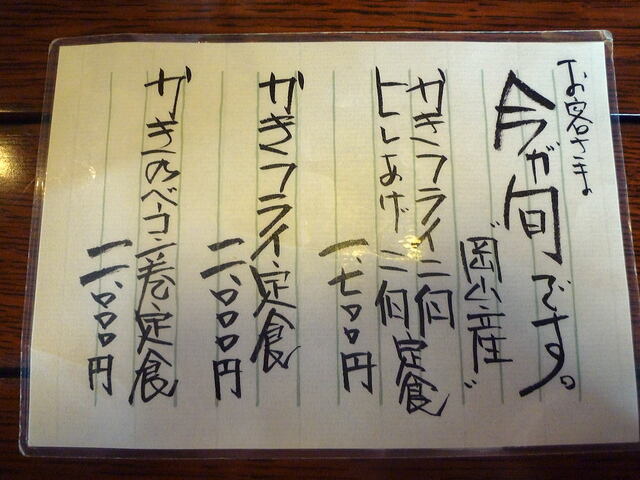 お客さま。
今が旬です。
"岡山産"
かきフライ二個
とりあげ二個定食
一、七〇〇円
かきフライ定食
二、〇〇〇円
かきのベーコン巻定食
二、〇〇〇円